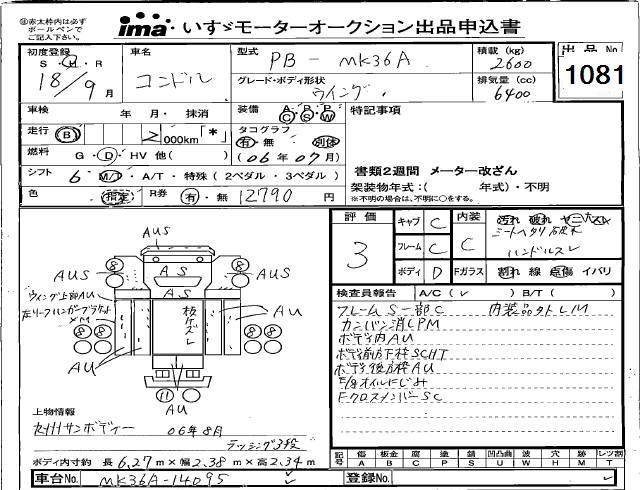 ※赤太枠内は必ずボールペンでご記入下さい。
ima・いすゞモーターオークション出品申込書
初度登録 S・H・R 18/9月
車名 コンドル
型式 PB-MK36A
積載(kg) 2600
出品No 1081
グレード・ボディ形状 ウイング
排気量(cc) 6400
車検 年 月・抹消
装備 AC PS PW
特記事項
走行 B 000km「*」
タコグラフ 有・無 別体
(06年07月)
燃料 G・D・HV 他( )
書類2週間 メーター改ざん
シフト 6 M/T・A/T・特殊(2ペダル・3ペダル)
架装物年式:( 年式)・不明
※不明の場合は、不明に○をする。
色 指定 R券 有・無 12790円
評価 3
キャブ C
フレーム C
ボディ D
内装 C
汚れ 破れ ヤニ スレ
シートヘタリ
ハンドルスレ
Fガラス 割れ 線 点傷 イバリ
検査員報告 A/C(✓) B/T( )
フレームS一部C 内装品外しM
カンバン消しPM
ボディ内AU
ボディ前方下枠SCHT
ボディ後方枠AU
E/gオイルにじみ
FクロスメンバーSC
AUS
AS
AUS
AS
AUS
ウイング上部AU
左リーフハンガーブラケットXM
板ケズレ
AU
AU
8
8
8
8
11
AU
上物情報
06年8月
ラッシング3段
ボディ内寸約 長6.27m×幅2.38m×高2.34m
記号 傷A 板金B 腐C 塗P 錆S 凹凸曲U 波W 穴H 跡M レツ割T
車台No. MK36A-14095
登録No.